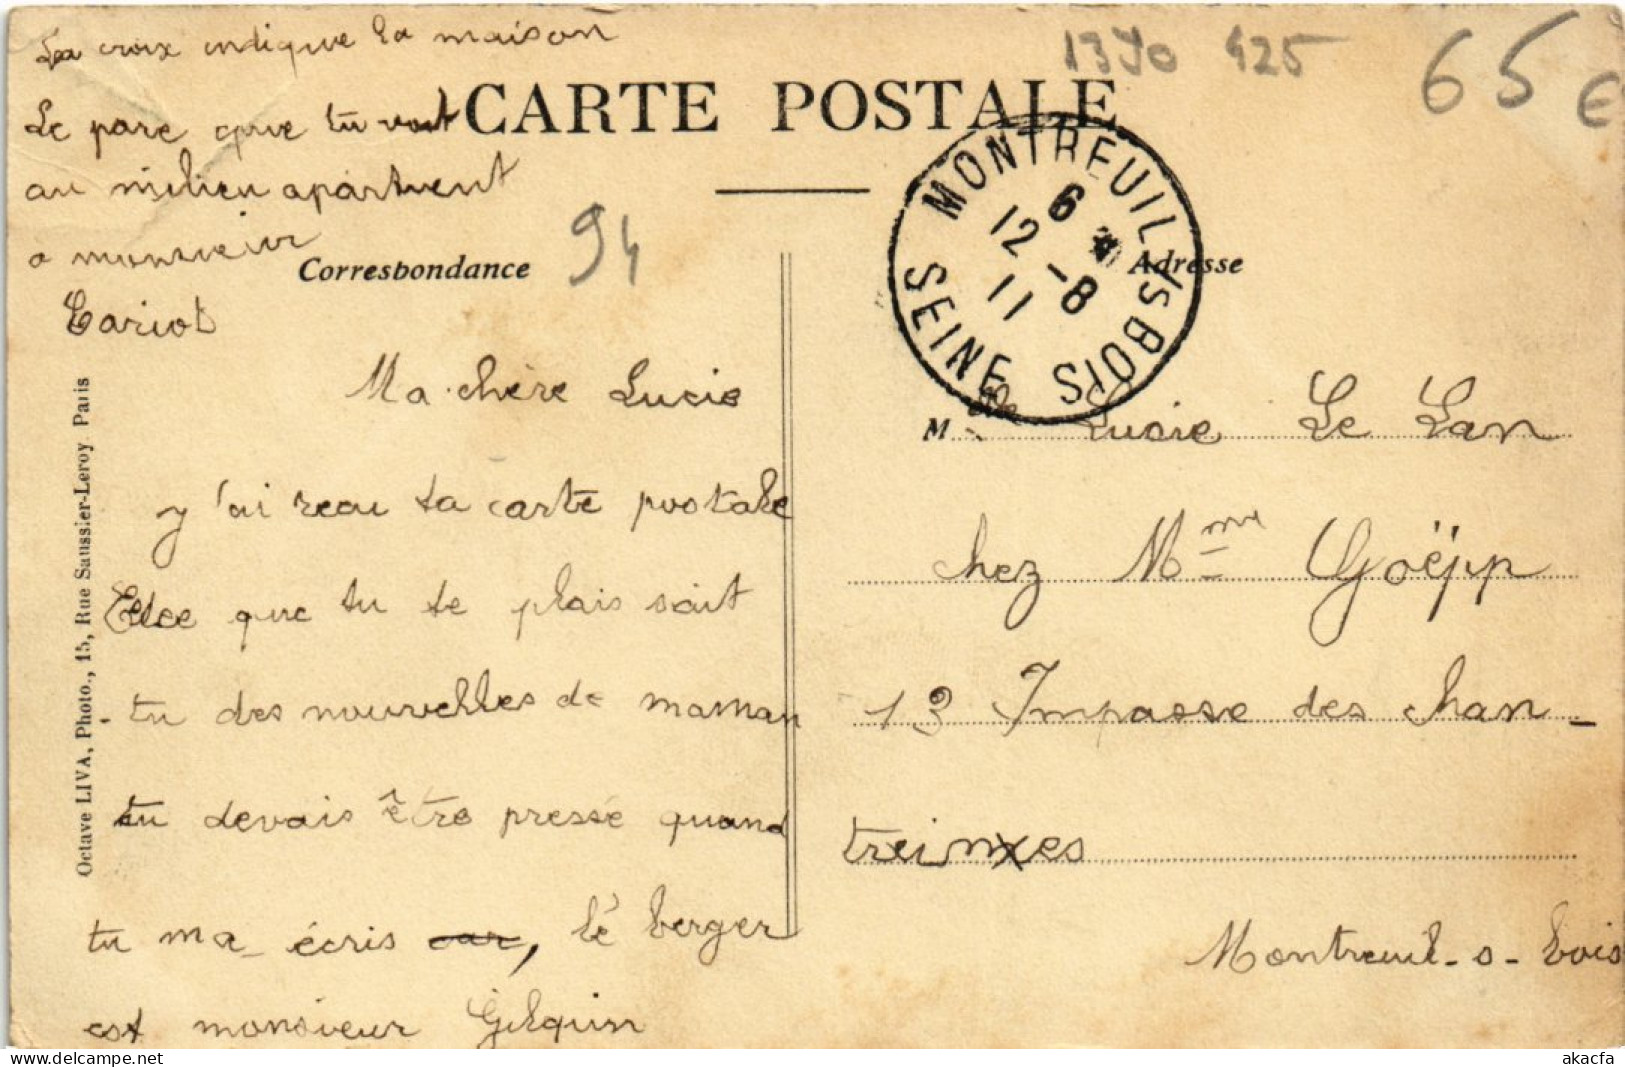 La croix indique la maison
Le parc que tu voit
au milieu apartvent
a monsieur
Cariot
13 Jo 425
65 €
CARTE POSTALE
94
Correspondance
Adresse
MONTREUIL S BOIS
SEINE
6 *
12 - 8
11
Octave LIVA, Photo., 15, Rue Saussier-Leroy Paris
Ma chère Lucie
y'ai reau ta carte postale
que tu te plais sait
tu des nouvelles de maman
tu devais être pressé quand
tu ma écris car, le berger
est monsieur Gilquin
M Lucie Le Lan
chez Mme Goëpp
13 Impasse des chan-
treinxes
Montreuil-s-bois
akacfa
https://www.delcampe.net